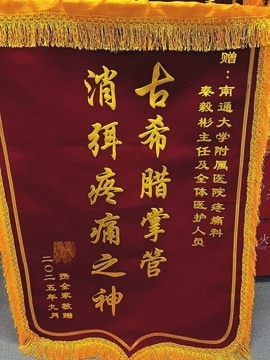 赠：南通大学附属医院疼痛科
秦毅彬主任及全体医护人员
古希腊掌管
消弭疼痛之神
敬赠
二〇二五年九月